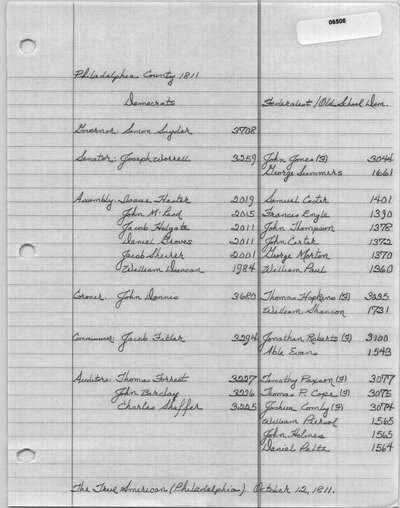 06506
Philadelphia County 1811
Democrats Federalist/Old School Dem.
Governor: Simon Snyder 3708
Senator: Joseph Worrell 3259 John Jones (F) 3044
George Summers 1661
Assembly: Isaac Hester 2019 Samuel Castor 1401
John M. Leod 2015 Francis Engle 1390
Jacob Holgate 2011 John Thompson 1378
Daniel Groves 2011 John Carter 1372
Jacob Sherer 2001 George Morton 1370
William Duncan 1984 William Paul 1360
Coroner: John Dennis 3680 Thomas Hopkins (F) 3035
William Shannon 1731
Commissioner: Jacob Fitler 3294 Jonathan Roberts (F) 3100
Able Evans 1543
Auditors: Thomas Forrest 3227 Timothy Paxson (F) 3077
John Barclay 3226 Thomas P. Cope (F) 3075
Charles Shaffer 3225 Joshua Comly (F) 3074
William Piersol 1565
John Holmes 1565
Daniel Peltz 1564
The True American (Philadelphia). October 12, 1811.